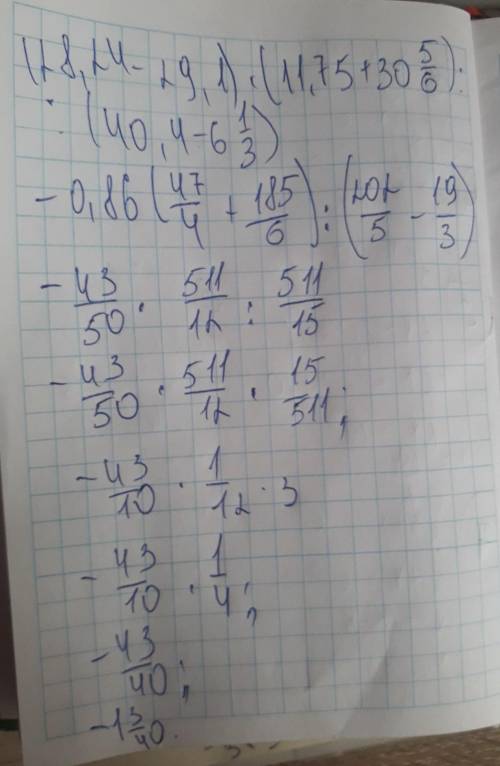 (28,24-29,1)·(11,75+30 5/6):
:(40,4-6 1/3)
-0,86(47/4+185/6):(202/5-19/3)
-43/50·511/12:511/15
-43/50·511/12·15/511;
-43/10·1/12·3
-43/10·1/4;
-43/40;
-1 3/40.